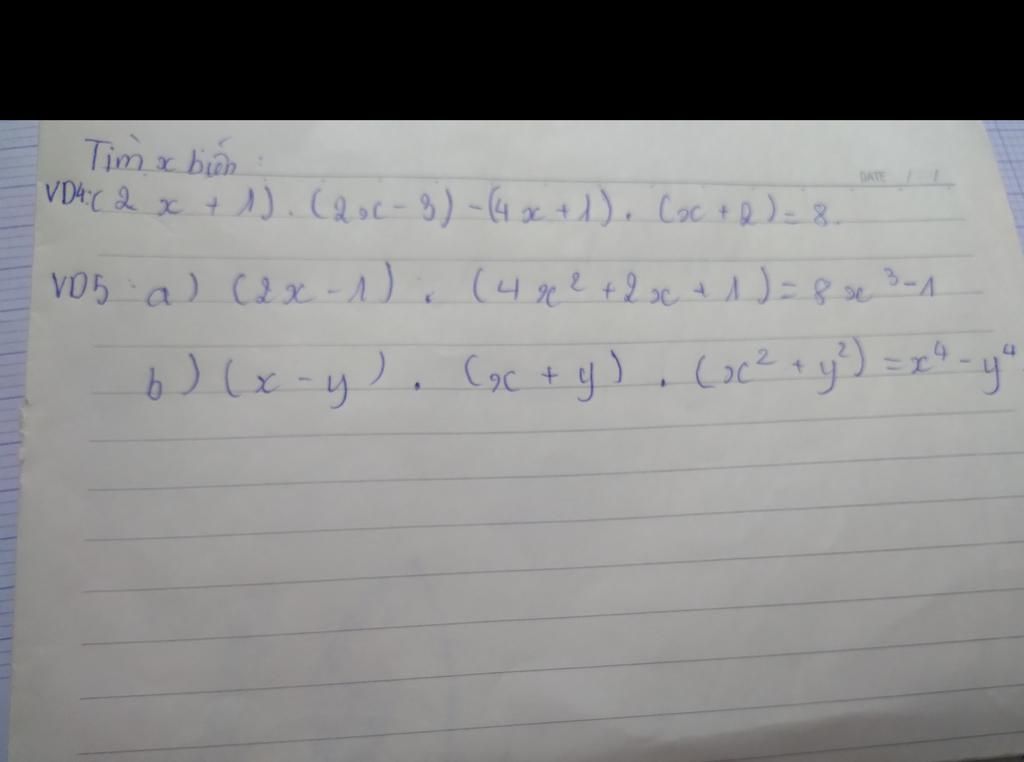 Tìm x biến :
DATE / /
VD4: (2x + 1) . (2x - 3) - (4x + 1) . (x + 2) = 8.
VD5 : a) (2x - 1) . (4x² + 2x + 1) = 8x³ - 1
b) (x - y) . (x + y) . (x² + y²) = x⁴ - y⁴